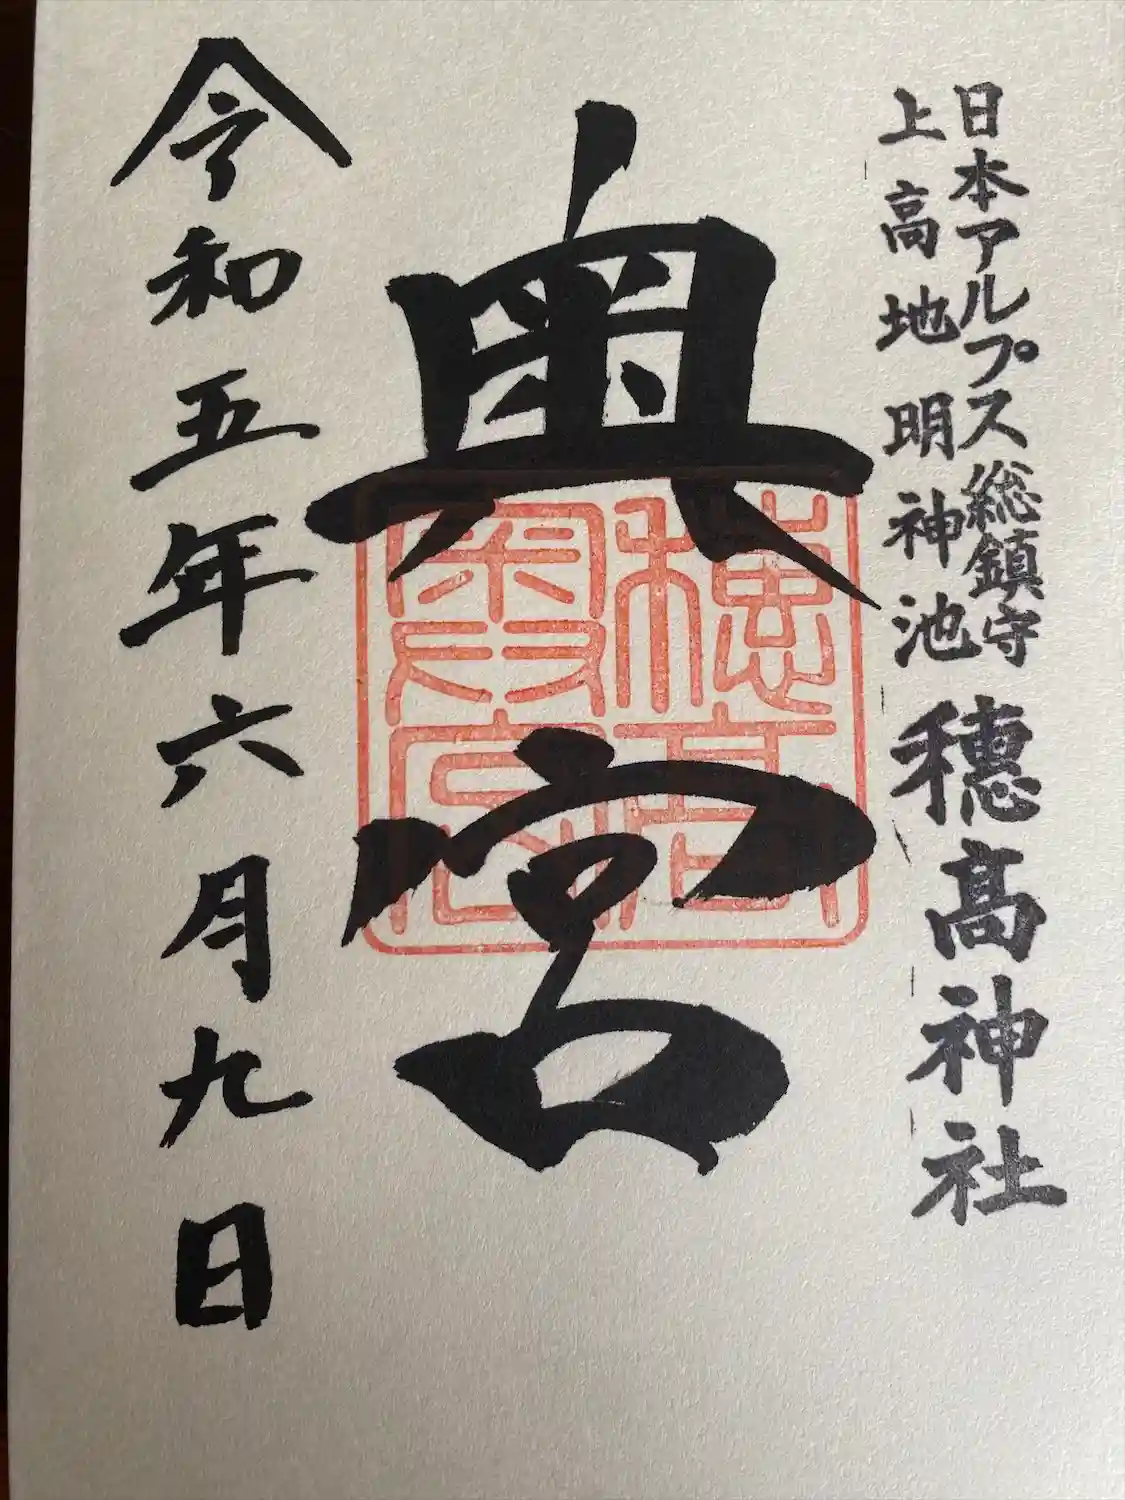 日本アルプス総鎮守
上高地明神池
穂高神社
奥宮
穂高
奥宮
令和五年六月九日